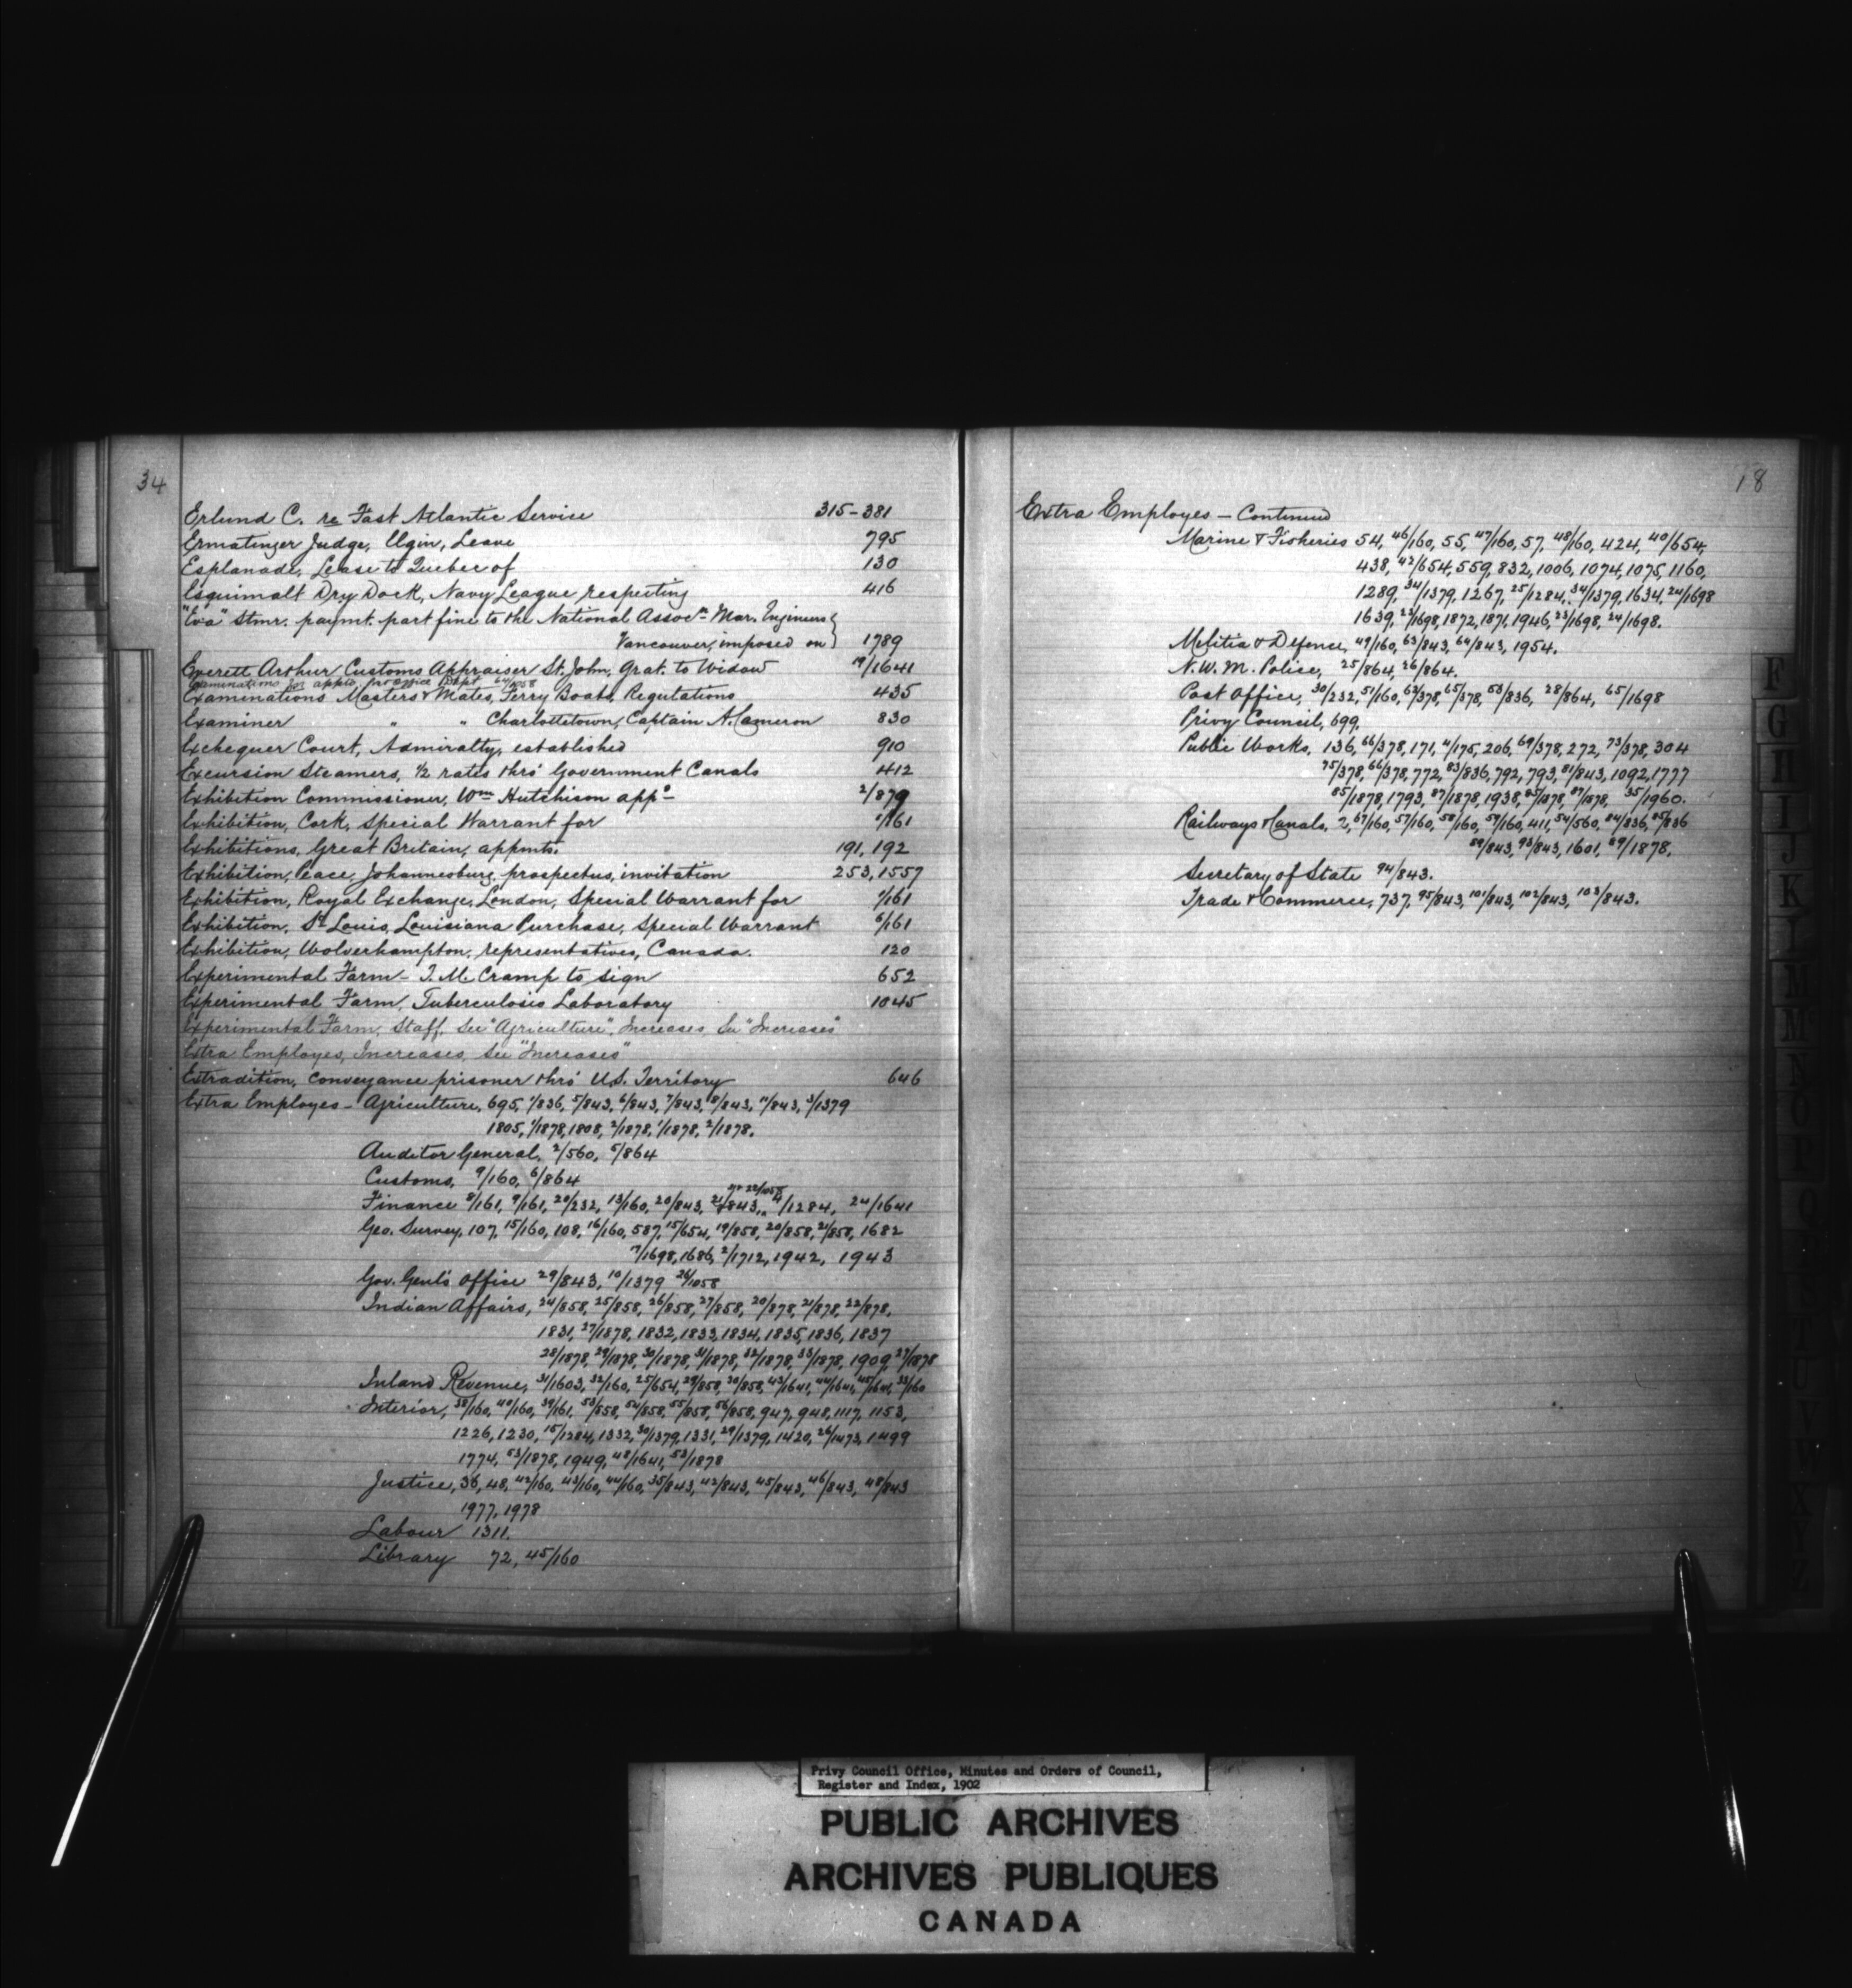 34
Erlund C. re Fast Atlantic Service 315-381
Ermatinger Judge, Elgin, Leave 795
Esplanade, Lease to Quebec of 130
Esquimalt Dry Dock, Navy League respecting 416
"Eva" Stmr. paymt. part fine to the National Assocn Mar. Engineers }
Vancouver, imposed on } 1789
Everett Arthur Customs Appraiser St. John, Grat. to Widow 19/1641
Examinations for appts. 64/1058
Examinations Masters & Mates, Ferry Boats, Regulations 435
Examiner " " Charlottetown, Captain A. Cameron 830
Exchequer Court, Admiralty, established 910
Excursion Steamers, 1/2 rates thro' Government Canals 412
Exhibition Commissioner, Wm Hutchison appd 2/879
Exhibition, Cork, Special Warrant for /161
Exhibitions, Great Britain, appmts. 191, 192
Exhibition, Peace, Johannesburg, prospectus, invitation 253, 1557
Exhibition, Royal Exchange, London, Special Warrant for 1/161
Exhibition, St Louis, Louisiana Purchase, Special Warrant 6/161
Exhibition, Wolverhampton, representatives, Canada. 120
Experimental Farm - T. M. Cramp to sign 652
Experimental Farm, Tuberculosis Laboratory 1045
Experimental Farm, Staff, See "Agriculture", Increases, See "Increases"
Extra Employes, Increases, See "Increases"
Extradition, conveyance prisoner thro' U.S. Territory 646
Extra Employes - Agriculture, 695, 1/836, 5/843, 6/843, 7/843, 8/843, 11/843, 3/1379
1805, 1/1878, 1808, 2/1878, 1/1878, 2/1878.
Auditor General, 2/560, 5/864
Customs, 9/160, 6/864
Finance 8/161, 9/161, 20/232, 13/160, 20/843, 21/843, 4/1284, 24/1641
Geo. Survey, 107, 15/160, 108, 16/160, 587, 15/654, 19/858, 20/858, 21/858, 1682
7/1698, 1686, 2/1712, 1942, 1943
Gov. Genl's Office 29/843, 10/1379 26/1058
Indian Affairs, 24/858, 25/858, 26/858, 27/858, 20/878, 21/878, 22/878,
1831, 27/1878, 1832, 1833, 1834, 1835, 1836, 1837
28/1878, 29/1878, 30/1878, 31/1878, 32/1878, 33/1878, 1909, 27/1878
Inland Revenue, 31/1603, 32/160, 25/654, 29/858, 30/858, 43/1641, 44/1641, 45/1641, 33/160
Interior, 38/160, 40/160, 39/161, 53/858, 54/858, 55/858, 56/858, 947, 948, 1117, 1153,
1226, 1230, 15/1284, 1332, 30/1379, 1331, 29/1379, 1420, 26/1473, 1499
1774, 53/1878, 1949, 48/1641, 53/1878
Justice, 36, 48, 42/160, 43/160, 44/160, 35/843, 42/843, 45/843, 46/843, 48/843
1977, 1978
Labour 1311.
Library 72, 45/160
18
Extra Employes - Continued
Marine & Fisheries 54, 46/160, 55, 47/160, 57, 48/160, 424, 40/654,
438, 42/654, 559, 832, 1006, 1074, 1075, 1160,
1289, 34/1379, 1267, 25/1284, 34/1379, 1634, 24/1698
1639, 23/1698, 1872, 1871, 1946, 23/1698, 24/1698.
Melitia & Defence, 49/160, 63/843, 64/843, 1954.
N. W. M. Police, 25/864, 26/864.
Post Office, 30/232, 51/160, 62/378, 65/378, 53/836, 28/864, 65/1698
Privy Council, 699,
Public Works, 136, 66/378, 171, 11/175, 206, 69/378, 272, 73/378, 304
75/378, 66/378, 772, 83/836, 792, 793, 81/843, 1092, 1777
85/1878, 1793, 87/1878, 1938, 85/1878, 87/1878, 35/1960.
Railways & Canals, 2, 67/160, 57/160, 58/160, 59/160, 411, 54/560, 84/836, 85/836
89/843, 93/843, 1601, 89/1878.
Secretary of State 94/843.
Trade & Commerce, 737, 95/843, 101/843, 102/843, 103/843.
F
G
I
J
K
M
N
Privy Council Office, Minutes and Orders of Council,
Register and Index, 1902
PUBLIC ARCHIVES
ARCHIVES PUBLIQUES
CANADA